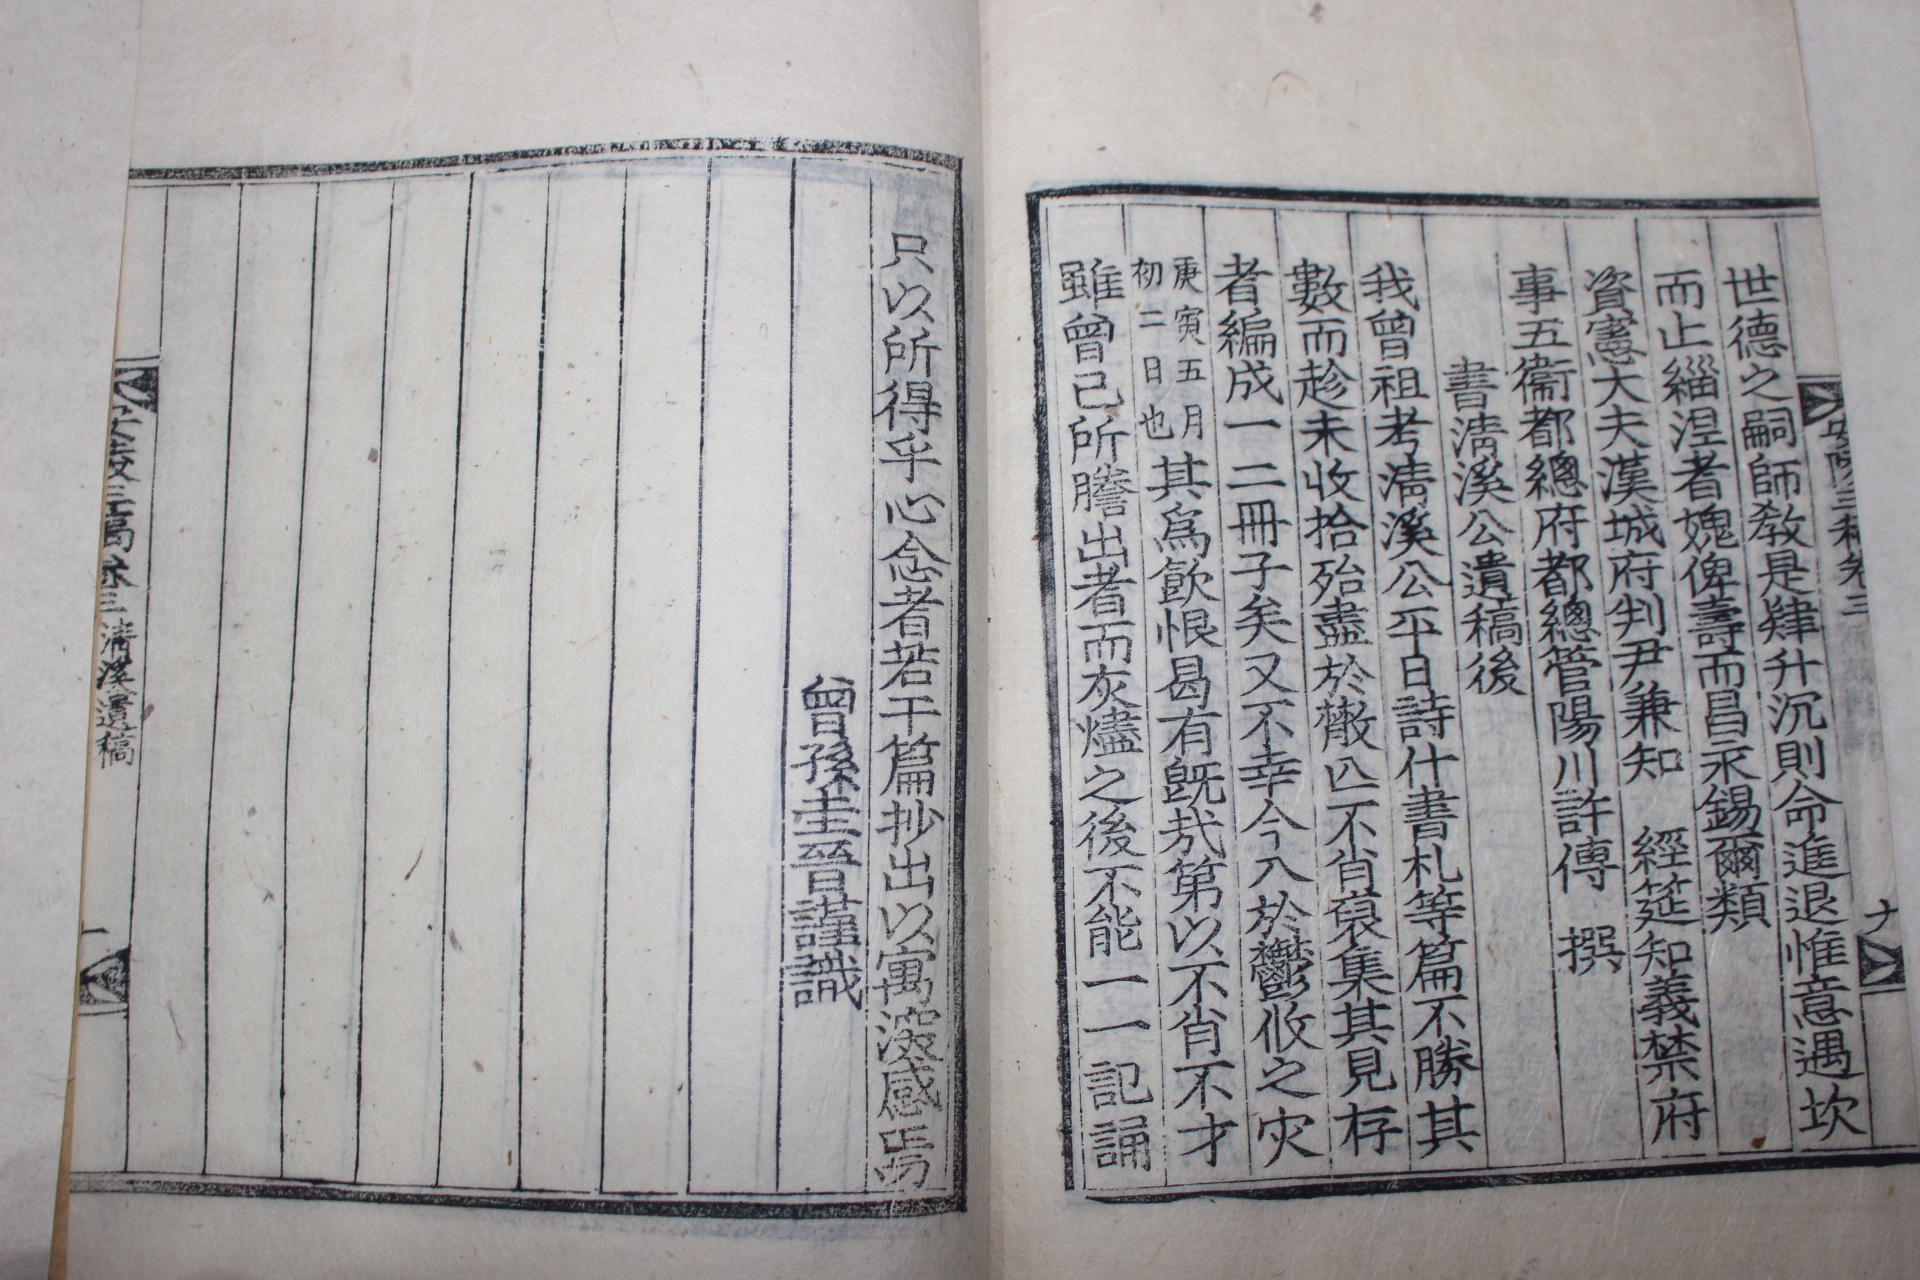 世德之嗣師教是肄升沉則命進退惟意遇坎
而止緇涅者媿俾壽而昌永錫爾類
資憲大夫漢城府判尹兼知 經筵知義禁府
事五衛都總府都總管陽川許傳 撰
書淸溪公遺稿後
我曾祖考淸溪公平日詩什書札等篇不勝其
數而趁未收拾殆盡於散亾不肖裒集其見存
者編成一二冊子矣又不幸今入於鬱攸之灾
庚寅五月
初二日也
其爲飮恨曷有旣㢤第以不肖不才
雖曾己所謄出者而灰燼之後不能一一記誦
只以所得乎心念者若干篇抄出以寓深感焉
曾孫圭晉謹識
三稿卷三 淸溪公遺稿